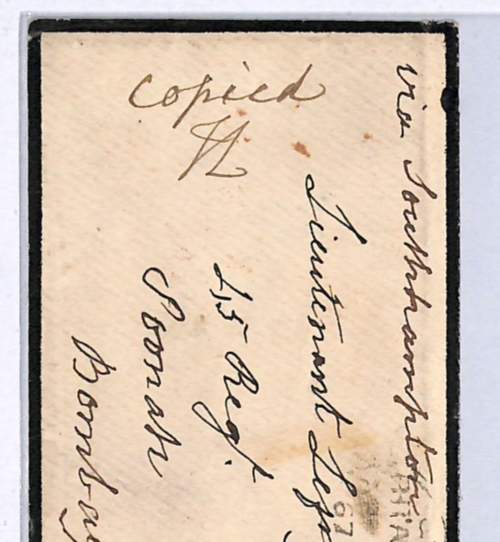 copied
via Southhampton
Lieutenant
45 Regt.
Poonah
Bombay
67